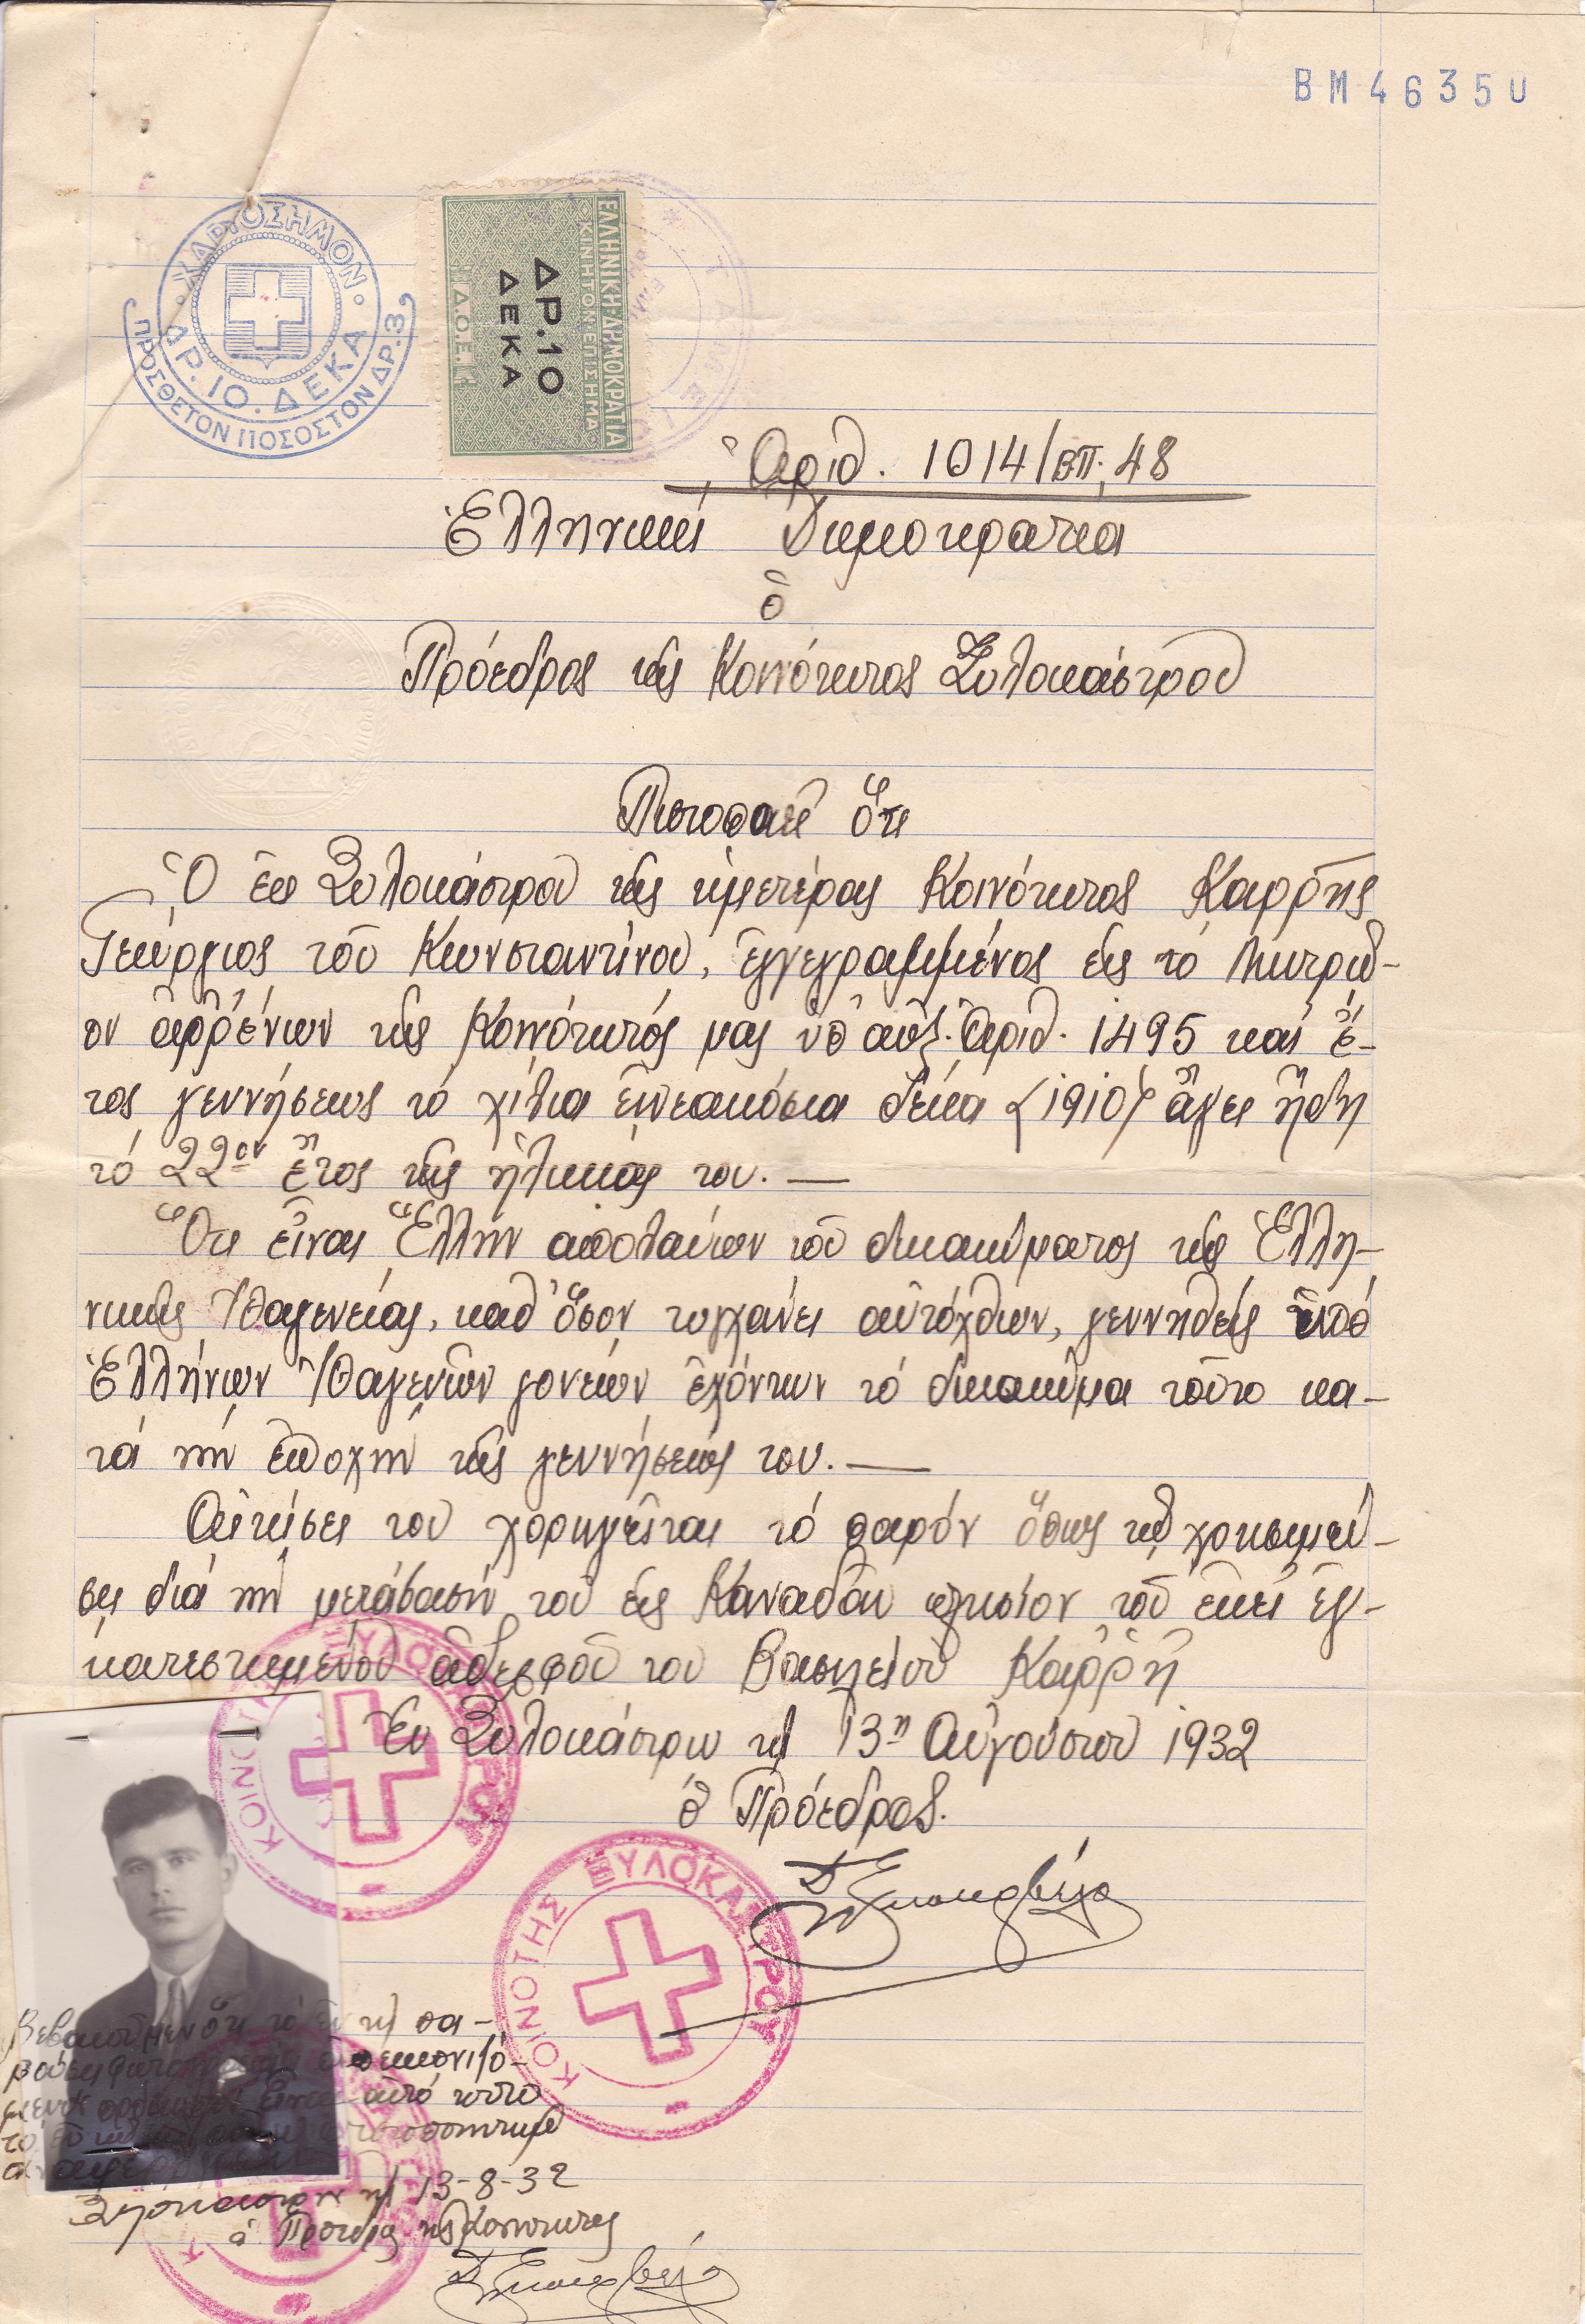 ΒΜ 46350
ΧΑΡΤΟΣΗΜΟΝ
ΔΡ. 10. ΔΕΚΑ
ΠΡΟΣΘΕΤΟΝ ΠΟΣΟΣΤΟΝ ΔΡ. 3
ΕΛΛΗΝΙΚΗ·ΔΗΜΟΚΡΑΤΙΑ
ΚΙΝΗΤΟΝ·ΕΠΙΣΗΜΑ
ΔΡ. 10
ΔΕΚΑ
Δ.Ο.Ε.
Ἀριθ. 1014/επ. 48
Ἑλληνική Δημοκρατία
ὁ
Πρόεδρος τῆς Κοινότητος Ξυλοκάστρου
Πιστοποιεῖ ὅτι
Ὁ ἐκ Ξυλοκάστρου τῆς ἡμετέρας Κοινότητος Καρρῆς
Γεώργιος τοῦ Κωνσταντίνου, ἐγγεγραμμένος εἰς τό Μητρῶ-
ον ἀρρένων τῆς Κοινότητός μας ὑπ' αὔξ. Ἀριθ. 1495 καί ἔ-
τος γεννήσεως τό χίλια ἐννεακόσια δέκα (1910) ἄγει ἤδη
τό 22ον ἔτος τῆς ἡλικίας του. —
Ὅτι εἶναι Ἕλλην ἀπολαύων τοῦ δικαιώματος τῆς Ἑλλη-
νικῆς Ἰθαγενείας, καθ' ὅσον τυγχάνει αὐτόχθων, γεννηθείς ἀπό
Ἑλλήνων Ἰθαγενῶν γονέων ἐχόντων τό δικαίωμα τοῦτο κα-
τά τήν ἐποχήν τῆς γεννήσεώς του. —
Αἰτήσει του χορηγεῖται τό παρόν ὅπως τῷ χρησιμεύ-
σει διά τήν μετάβασίν του εἰς Καναδᾶν πλησίον τοῦ ἐκεῖ ἐγ-
κατεστημένου ἀδερφοῦ του Βασιλείου Καρρῆ
Ἐν Ξυλοκάστρῳ τῇ 13η Αὐγούστου 1932
ὁ Πρόεδρος.
ΚΟΙΝΟΤΗΣ ΞΥΛΟΚΑΣΤΡΟΥ
ΚΟΙΝΟΤΗΣ ΞΥΛΟΚΑΣΤΡΟΥ
Βεβαιοῦμεν ὅτι τό ἐν τῇ πα-
ρούσῃ φωτογραφίᾳ ἀπεικονιζό-
μενον πρόσωπον εἶναι αὐτό τοῦτο
τό ἐν τῷ πιστοποιητικῷ
Ξυλόκαστρον τῇ 13-8-32
ὁ Πρόεδρος τῆς Κοινότητος